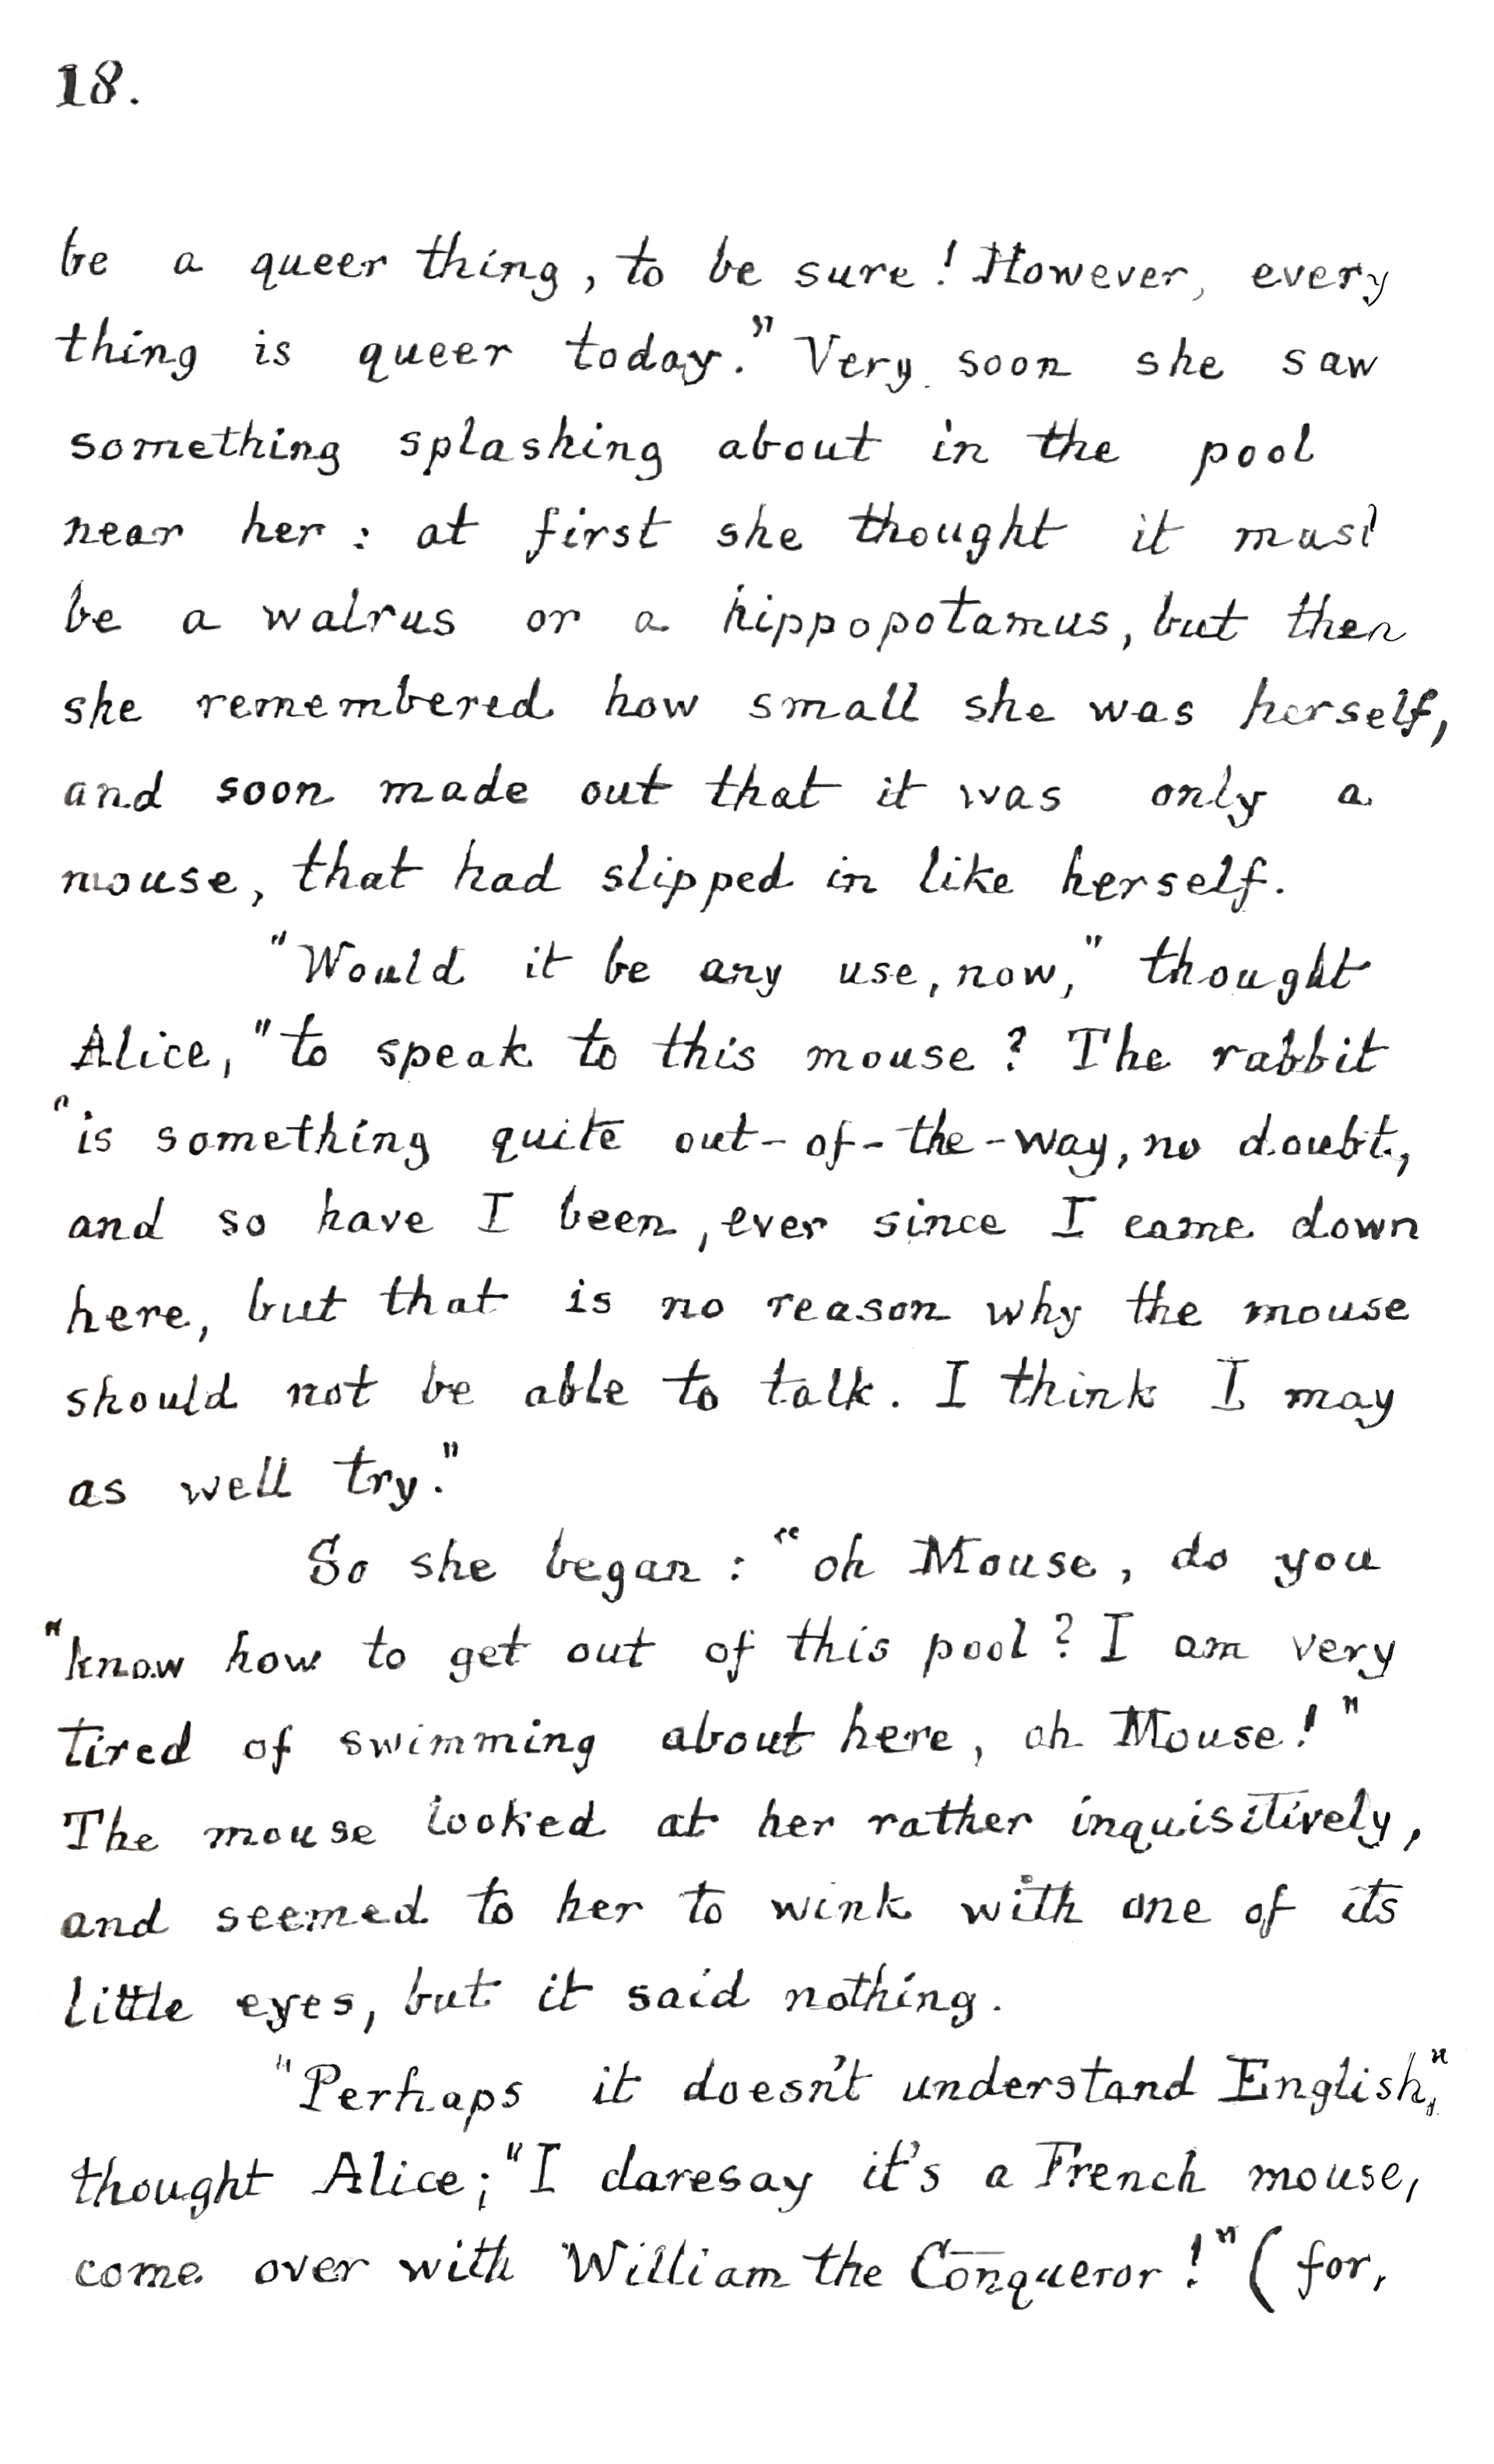 18.
be a queer thing, to be sure! However, every
thing is queer today." Very soon she saw
something splashing about in the pool
near her: at first she thought it must
be a walrus or a hippopotamus, but then
she remembered how small she was herself,
and soon made out that it was only a
mouse, that had slipped in like herself.
"Would it be any use, now," thought
Alice, "to speak to this mouse? The rabbit
"is something quite out-of-the-way, no doubt,
and so have I been, ever since I came down
here, but that is no reason why the mouse
should not be able to talk. I think I may
as well try."
So she began: "oh Mouse, do you
"know how to get out of this pool? I am very
tired of swimming about here, oh Mouse!"
The mouse looked at her rather inquisitively,
and seemed to her to wink with one of its
little eyes, but it said nothing.
"Perhaps it doesn't understand English,"
thought Alice; "I daresay it's a French mouse,
come over with William the Conqueror!" (for,